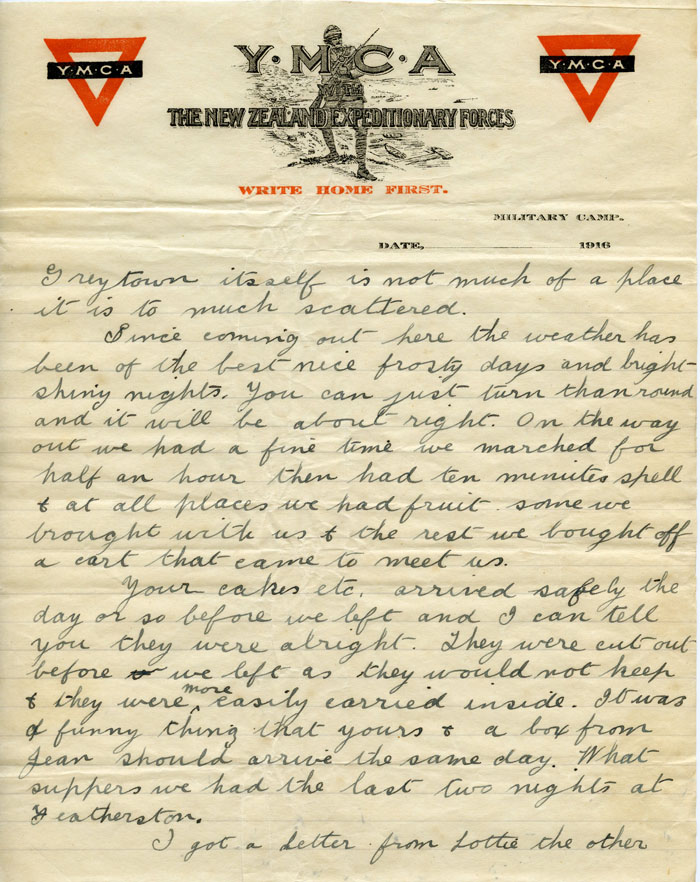 Y·M·C·A
Y·M·C·A
Y·M·C·A
WITH
THE NEW ZEALAND EXPEDITIONARY FORCES
WRITE HOME FIRST.
MILITARY CAMP.
DATE, 1916
Greytown itself is not much of a place
it is to much scattered.
Since coming out here the weather has
been of the best nice frosty days and bright
shiny nights. You can just turn than round
and it will be about right. On the way
out we had a fine time we marched for
half an hour then had ten minuites spell
& at all places we had fruit some we
brought with us & the rest we bought off
a cart that came to meet us.
Your cakes etc. arrived safely the
day or so before we left and I can tell
you they were alright. They were cut out
before we left as they would not keep
& they were more easily carried inside. It was
a funny thing that yours & a box from
Jean should arrive the same day. What
suppers we had the last two nights at
Featherston.
I got a letter from Lottie the other